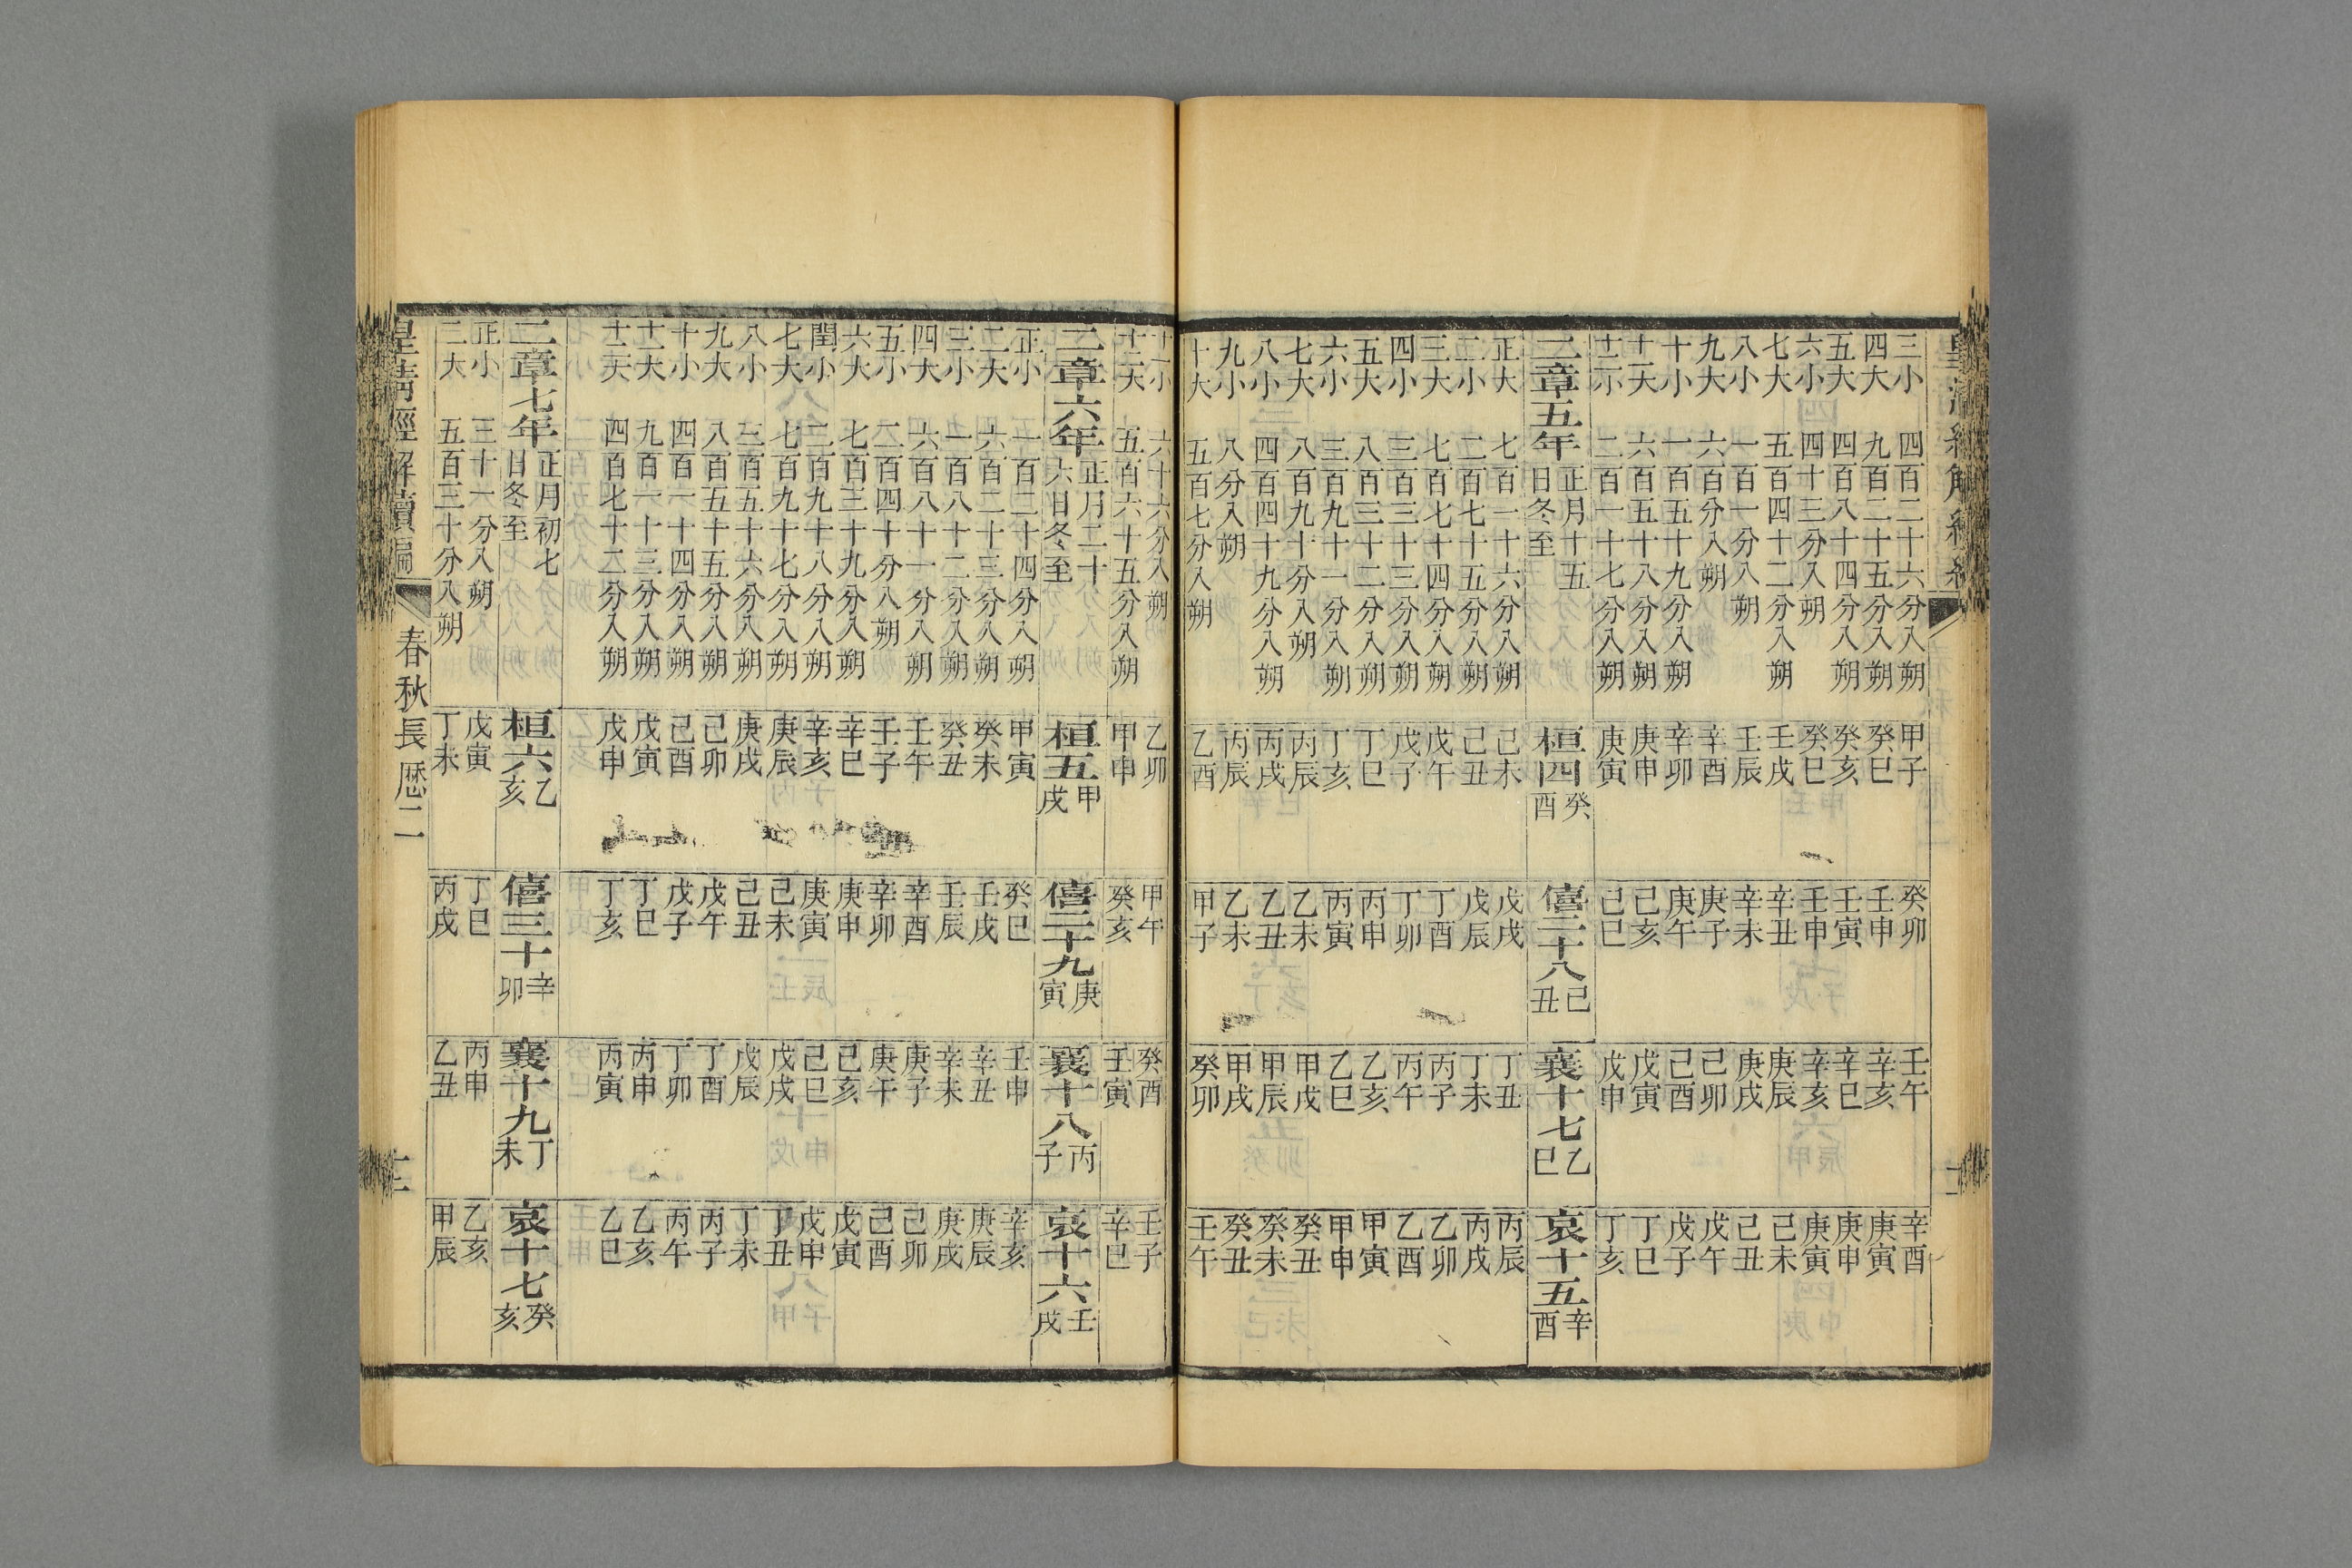 三小　四百二十六分入朔　甲子　癸卯　壬午　辛酉
四大　九百二十五分入朔　癸巳　壬申　辛亥　庚寅
五大　四百八十四分入朔　癸亥　壬寅　辛巳　庚申
六小　四十三分入朔　癸巳　壬申　辛亥　庚寅
七大　五百四十二分入朔　壬戌　辛丑　庚辰　己未
八小　一百一分入朔　壬辰　辛未　庚戌　己丑
九大　六百分入朔　辛酉　庚子　己卯　戊午
十小　一百五十九分入朔　辛卯　庚午　己酉　戊子
十一大　六百五十八分入朔　庚申　己亥　戊寅　丁巳
十二小　二百一十七分入朔　庚寅　己巳　戊申　丁亥
二章五年　正月十五日冬至　桓四癸酉　僖二十八己丑　襄十七乙巳　哀十五辛酉
正大　七百一十六分入朔　己未　戊戌　丁丑　丙辰
二小　二百七十五分入朔　己丑　戊辰　丁未　丙戌
三大　七百七十四分入朔　戊午　丁酉　丙子　乙卯
四小　三百三十三分入朔　戊子　丁卯　丙午　乙酉
五大　八百三十二分入朔　丁巳　丙申　乙亥　甲寅
六小　三百九十一分入朔　丁亥　丙寅　乙巳　甲申
七大　八百九十分入朔　丙辰　乙未　甲戌　癸丑
八小　四百四十九分入朔　丙戌　乙丑　甲辰　癸未
九小　八分入朔　丙辰　乙未　甲戌　癸丑
十大　五百七分入朔　乙酉　甲子　癸卯　壬午
十一小　六十六分入朔　乙卯　甲午　癸酉　壬子
十二大　五百六十五分入朔　甲申　癸亥　壬寅　辛巳
二章六年　正月二十六日冬至　桓五甲戌　僖二十九庚寅　襄十八丙子　哀十六壬戌
正小　一百二十四分入朔　甲寅　癸巳　壬申　辛亥
二大　六百二十三分入朔　癸未　壬戌　辛丑　庚辰
三小　一百八十二分入朔　癸丑　壬辰　辛未　庚戌
四大　六百八十一分入朔　壬午　辛酉　庚子　己卯
五小　二百四十分入朔　壬子　辛卯　庚午　己酉
六大　七百三十九分入朔　辛巳　庚申　己亥　戊寅
閏小　二百九十八分入朔　辛亥　庚寅　己巳　戊申
七大　七百九十七分入朔　庚辰　己未　戊戌　丁丑
八小　三百五十六分入朔　庚戌　己丑　戊辰　丁未
九大　八百五十五分入朔　己卯　戊午　丁酉　丙子
十小　四百一十四分入朔　己酉　戊子　丁卯　丙午
十一大　九百一十三分入朔　戊寅　丁巳　丙申　乙亥
十二大　四百七十二分入朔　戊申　丁亥　丙寅　乙巳
二章七年　正月初七日冬至　桓六乙亥　僖三十辛卯　襄十九丁未　哀十七癸亥
正小　三十一分入朔　戊寅　丁巳　丙申　乙亥
二大　五百三十分入朔　丁未　丙戌　乙丑　甲辰
皇清經解續編　春秋長厯二　十二